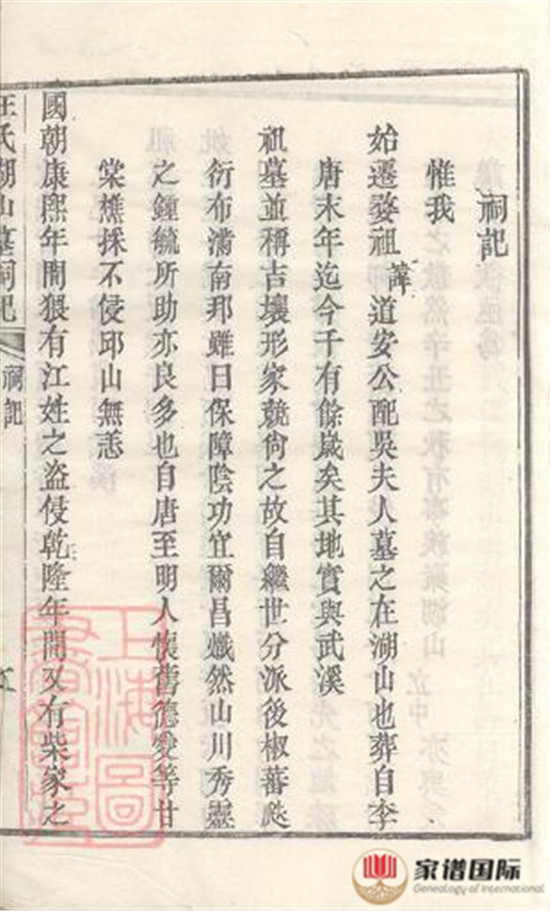 祠記
惟我
始遷婺祖諱道安公配吳夫人墓之在湖山也葬自李
唐末年迄今千有餘歲矣其地實與武溪
祖墓並稱吉壤形家競尙之故自繼世分派後椒蕃瓞
衍布滿南邦雖曰保障陰功宜爾昌熾然山川秀靈
之鍾毓所助亦良多也自唐至明人懷舊德愛等甘
棠樵採不侵邱山無恙
國朝康熙年間猥有江姓之盜侵乾隆年間又有柴家之
汪氏湖山墓祠記
祠記
上海圖
書館藏
家谱国际
Genealogy of International